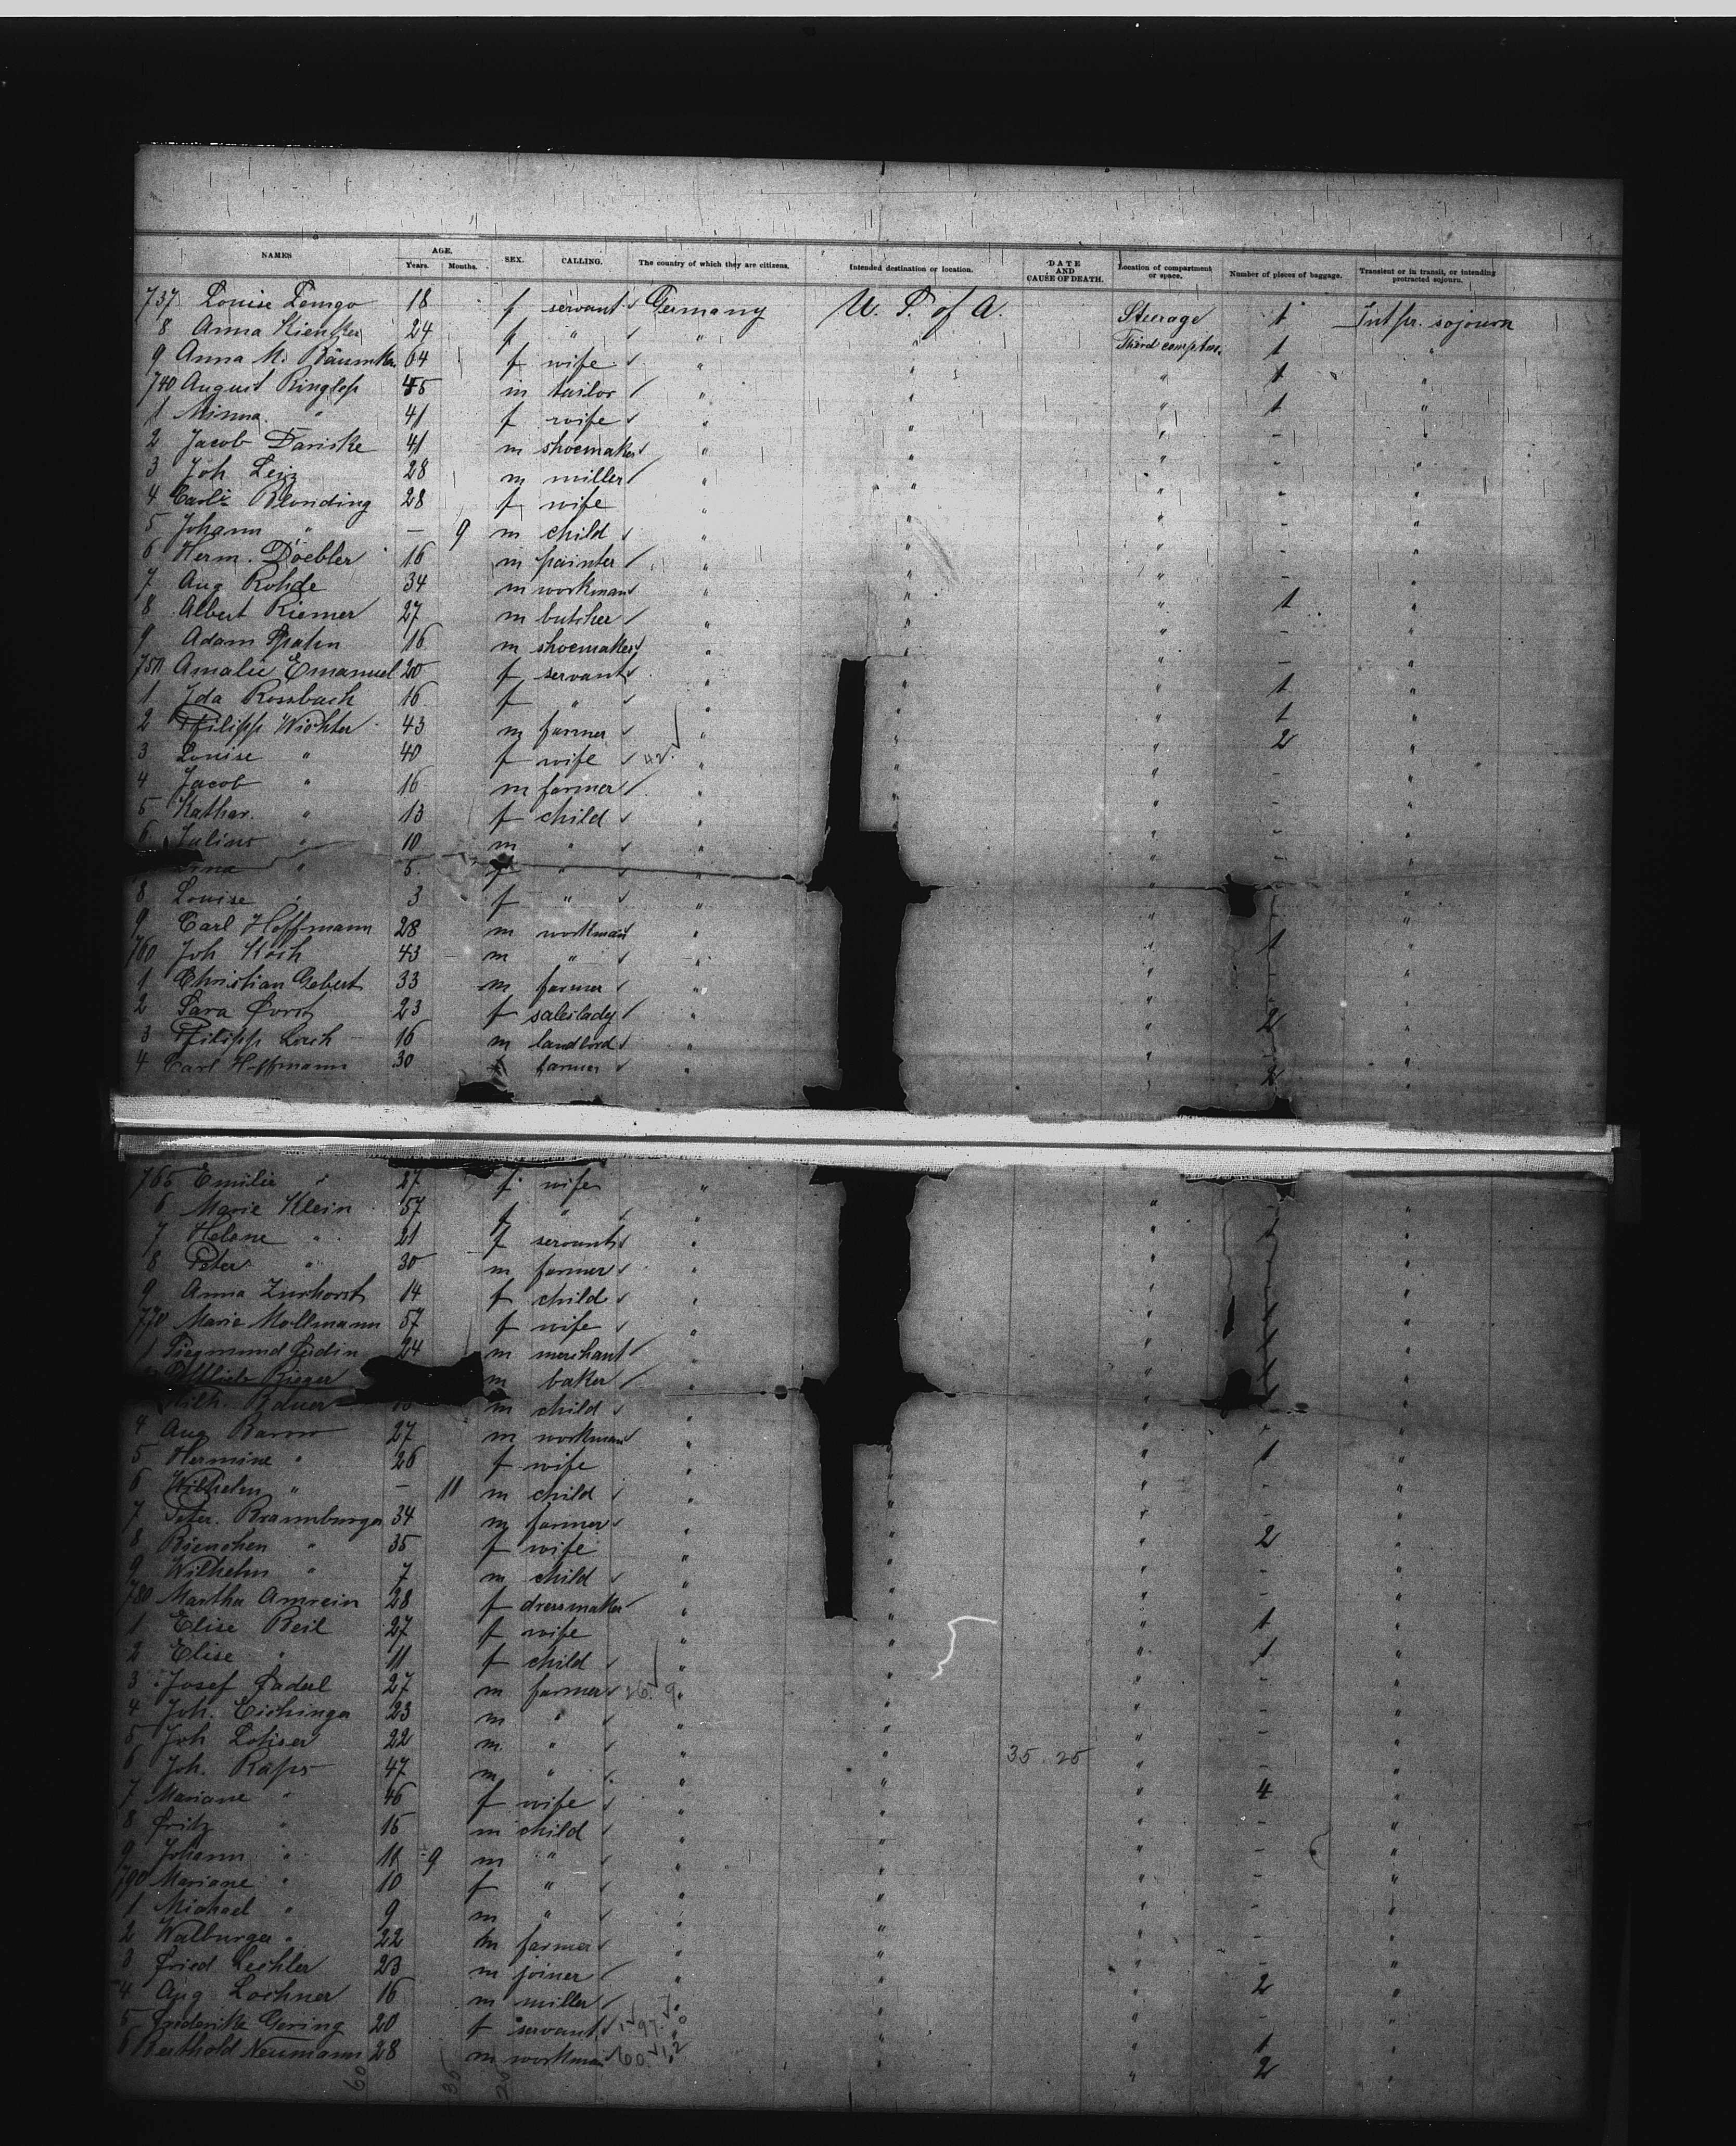 NAMES AGE. SEX. CALLING. The country of which they are citizens. Intended destination or location. DATE AND CAUSE OF DEATH. Location of compartment or space. Number of pieces of baggage. Transient or in transit, or intending protracted sojourn.
Years. Months.
737 Louise Lemgo 18 f servant Germany U. S. of A. Steerage 1 Int pr. sojourn
8 Anna 24 f " " " Third comptm. 1 "
9 Anna M. 64 f wife " " " 1 "
740 August Ringleb 45 m tailor " " " 1 "
1 Minna " 41 f wife " " " - "
2 Jacob 41 m shoemaker " " " - "
3 Joh 28 m miller " " " - "
4 Blonding 28 f wife " " " - "
5 Johann " - 9 m child " " " - "
6 Herm. Doebler 16 m painter " " " - "
7 Aug Rohde 34 m workman " " " 1 "
8 Albert Riemer 27 m butcher " " " - "
9 Adam Spahn 16 m shoemaker " " " - "
750 Amalie Emanuel 20 f servant " " " 1 "
1 Ida Rossbach 16 f " " " " 1 "
2 Philipp Wichter 43 m farmer " " 2 "
3 Louise " 40 f wife " " - "
4 Jacob " 16 m farmer " " - "
5 Kathar. " 13 f child " " - "
6 Julius " 10 m " " " - "
" 5 f " " " "
8 Louise " 3 f " " " "
9 Carl Hoffmann 28 m workman " " 1 "
760 Joh Koch 43 m " " " - "
1 Christian Gebert 33 m farmer " " - "
2 Sara 23 f saleslady " " 2 "
3 Philipp Loch 16 m landlord " " - "
4 Carl Hoffmann 30 farmer " " 2 "
765 Emilie " 27 f wife "
6 Marie Klein 57 f " " " "
7 Helene " 21 f servant " " 1 "
8 Peter " 30 m farmer " " "
9 Anna Zurhorst 14 f child " " "
770 Marie Mollmann 57 f wife " " 1 "
1 Siegmund 24 m merchant " " 1 "
Rieger m baker " " 1 "
m child " " 1 "
4 Aug Barow 27 m workman " " "
5 Hermine " 26 f wife " " " 1 "
6 Wilhelm " - 11 m child " " " - "
7 Peter Brannburger 34 m farmer " " " - "
8 Bienchen " 35 f wife " " " 2 "
9 Wilhelm " 7 m child " " " - "
780 Martha Amrein 28 f dressmaker " " " - "
1 Elise Beil 27 f wife " " " 1 "
2 Elise " 11 f child " " " 1 "
3 Josef 27 m farmer " " " - "
4 Joh. Eichinger 23 m " " " " - "
5 Joh 22 m " " " " - "
6 Joh. 47 m " " " 35 25 " - "
7 Mariane " 46 f wife " " " 4 "
8 Fritz " 15 m child " " " - "
9 Johann " 11 9 m " " " " - "
790 Mariane " 10 f " " " " - "
1 Michael " 9 m " " " " - "
2 Walburga " 22 m farmer " " " - "
3 Fried Lechler 23 m joiner " " " - "
4 Aug Lochner 16 m miller " " " 2 "
5 Frederike Gering 20 f servant " " " - "
6 Berthold Neumann 28 m workman " 1 "
60 35 25 2